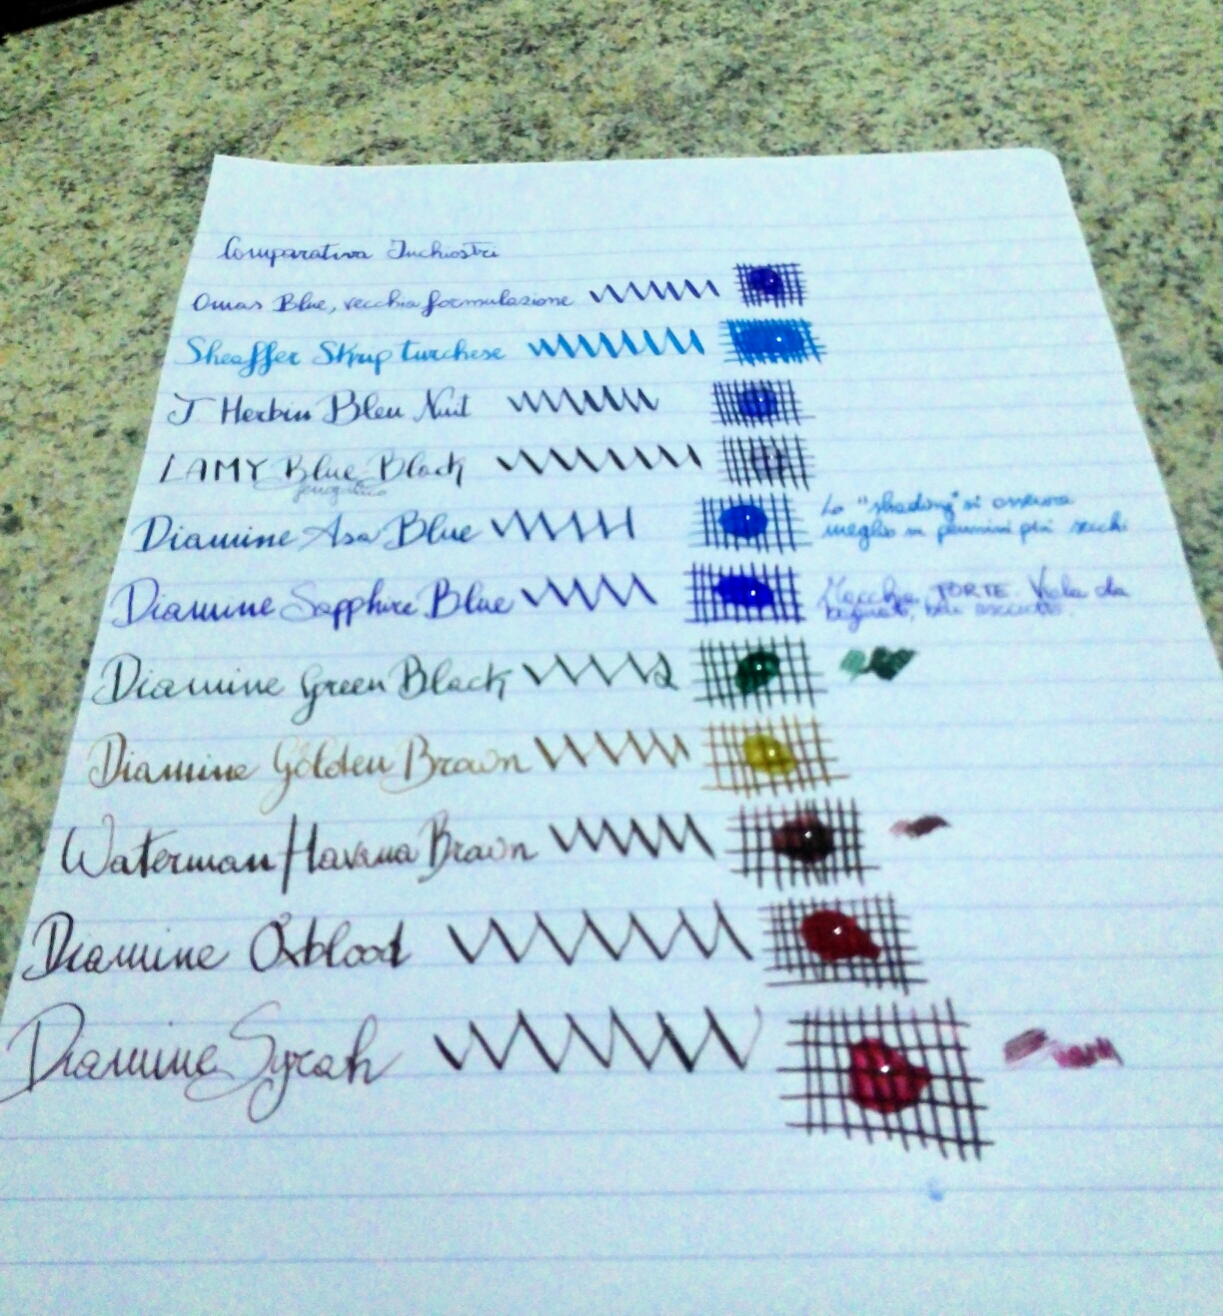 Comparativa Inchiostri
Omas Blue, vecchia formulazione
Sheaffer Skrip turchese
J Herbin Bleu Nuit
LAMY Blue Black
ferrogallico
Diamine Asa Blue
Lo "shading" si osserva
meglio su pennini più secchi
Diamine Sapphire Blue
Macchia FORTE. Viola da
bagnato, blu asciutto.
Diamine Green Black
Diamine Golden Brown
Waterman Havana Brown
Diamine Oxblood
Diamine Syrah